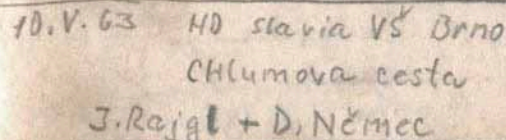 10.V.63 HO slavia VŠ Brno
CHlumova cesta
J.Rajgl + D.Němec